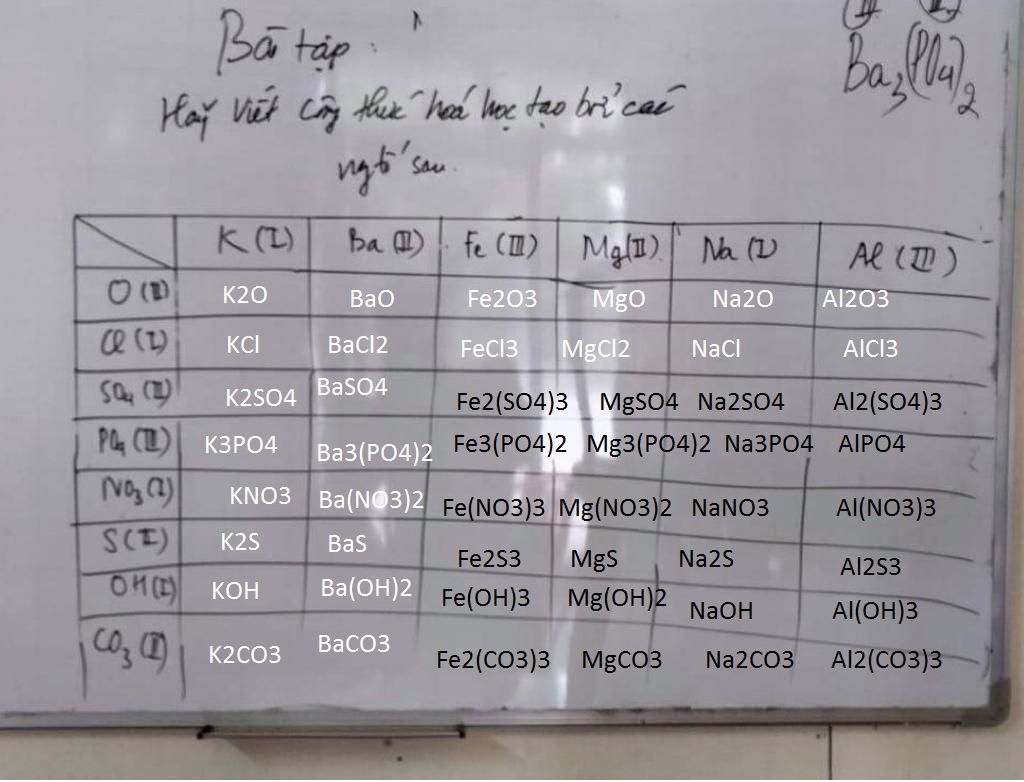 (III) (II)
Ba3(PO4)2
Bài tập:
Hãy viết công thức hoá học tạo bởi các
ngtố sau.
K (I) Ba (II) Fe (III) Mg (II) Na (I) Al (III)
O (II) K2O BaO Fe2O3 MgO Na2O Al2O3
Cl (I) KCl BaCl2 FeCl3 MgCl2 NaCl AlCl3
SO4 (II) K2SO4 BaSO4 Fe2(SO4)3 MgSO4 Na2SO4 Al2(SO4)3
PO4 (III) K3PO4 Ba3(PO4)2 Fe3(PO4)2 Mg3(PO4)2 Na3PO4 AlPO4
NO3 (I) KNO3 Ba(NO3)2 Fe(NO3)3 Mg(NO3)2 NaNO3 Al(NO3)3
S (I) K2S BaS Fe2S3 MgS Na2S Al2S3
OH (I) KOH Ba(OH)2 Fe(OH)3 Mg(OH)2 NaOH Al(OH)3
CO3 (II) K2CO3 BaCO3 Fe2(CO3)3 MgCO3 Na2CO3 Al2(CO3)3